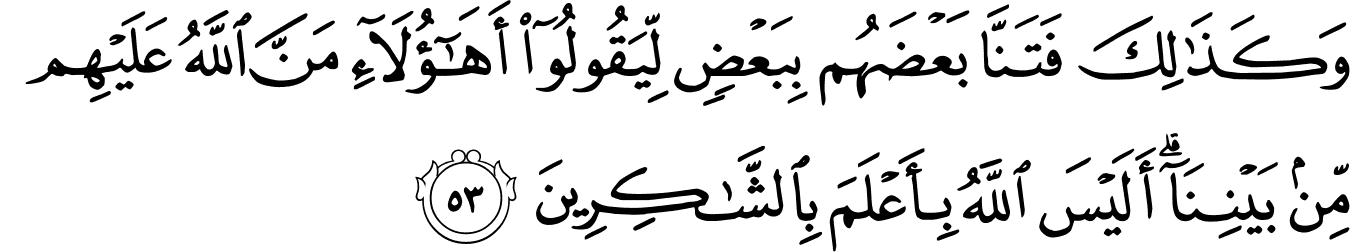 وَكَذَٰلِكَ فَتَنَّا بَعْضَهُم بِبَعْضٍ لِّيَقُولُوٓا۟ أَهَـٰٓؤُلَآءِ مَنَّ ٱللَّهُ عَلَيْهِم
مِّنۢ بَيْنِنَآ ۗ أَلَيْسَ ٱللَّهُ بِأَعْلَمَ بِٱلشَّـٰكِرِينَ ٥٣